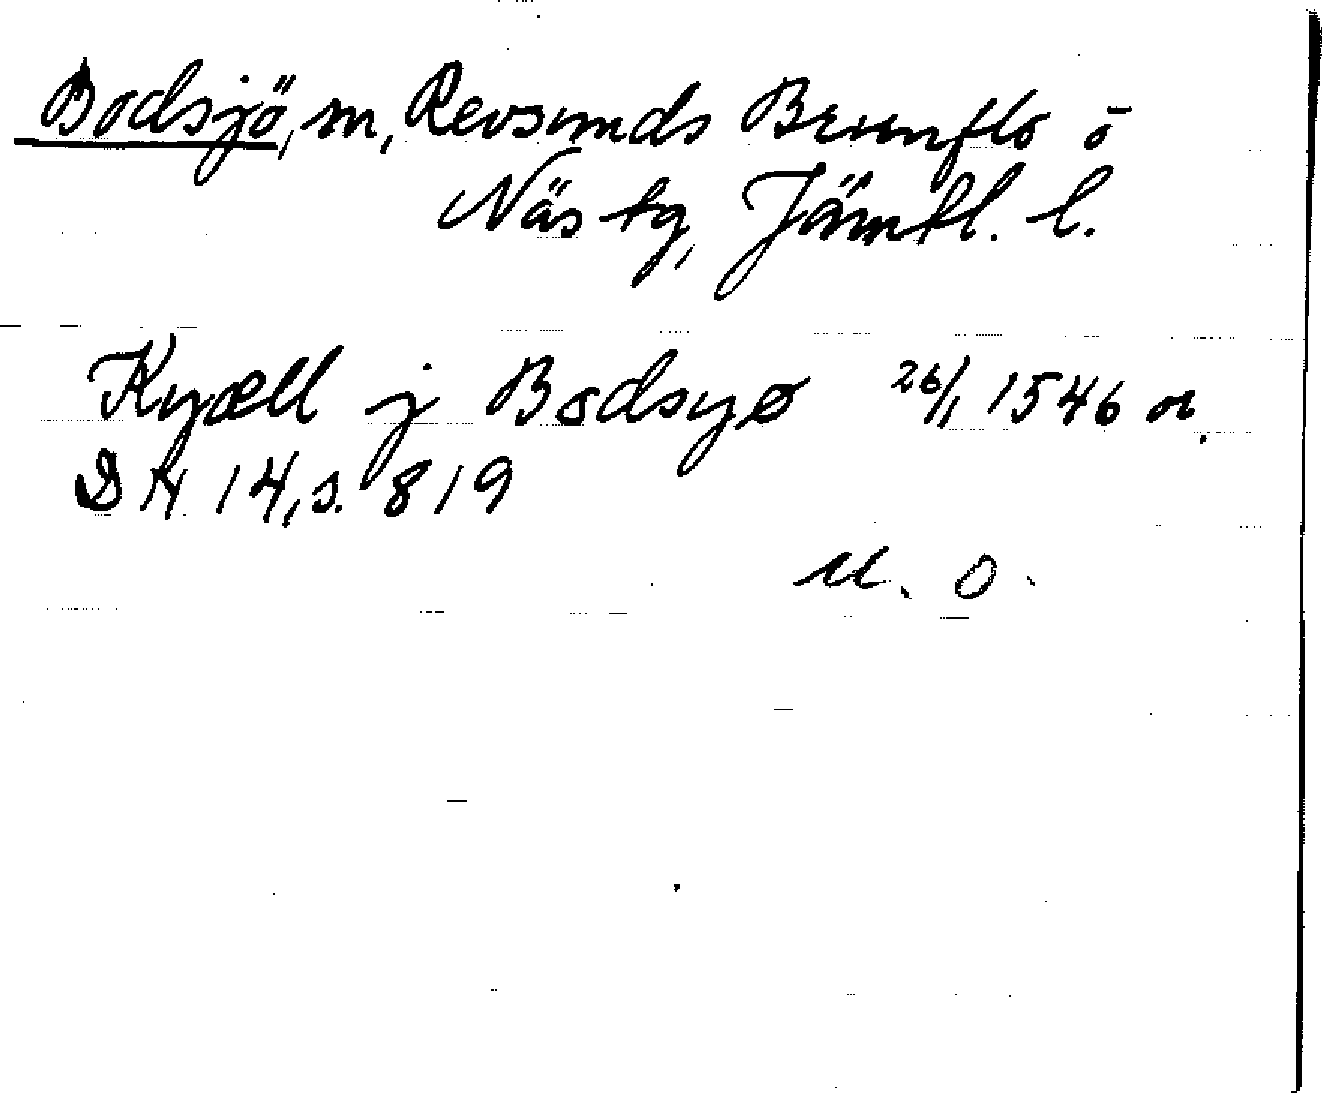 Bodsjö, sn, Revsunds Brunflo o
Näs tg, Jämtl. l.
Kyæll j Bodsyø 26/1 1546 or.
DN 14, s. 819
M. O.